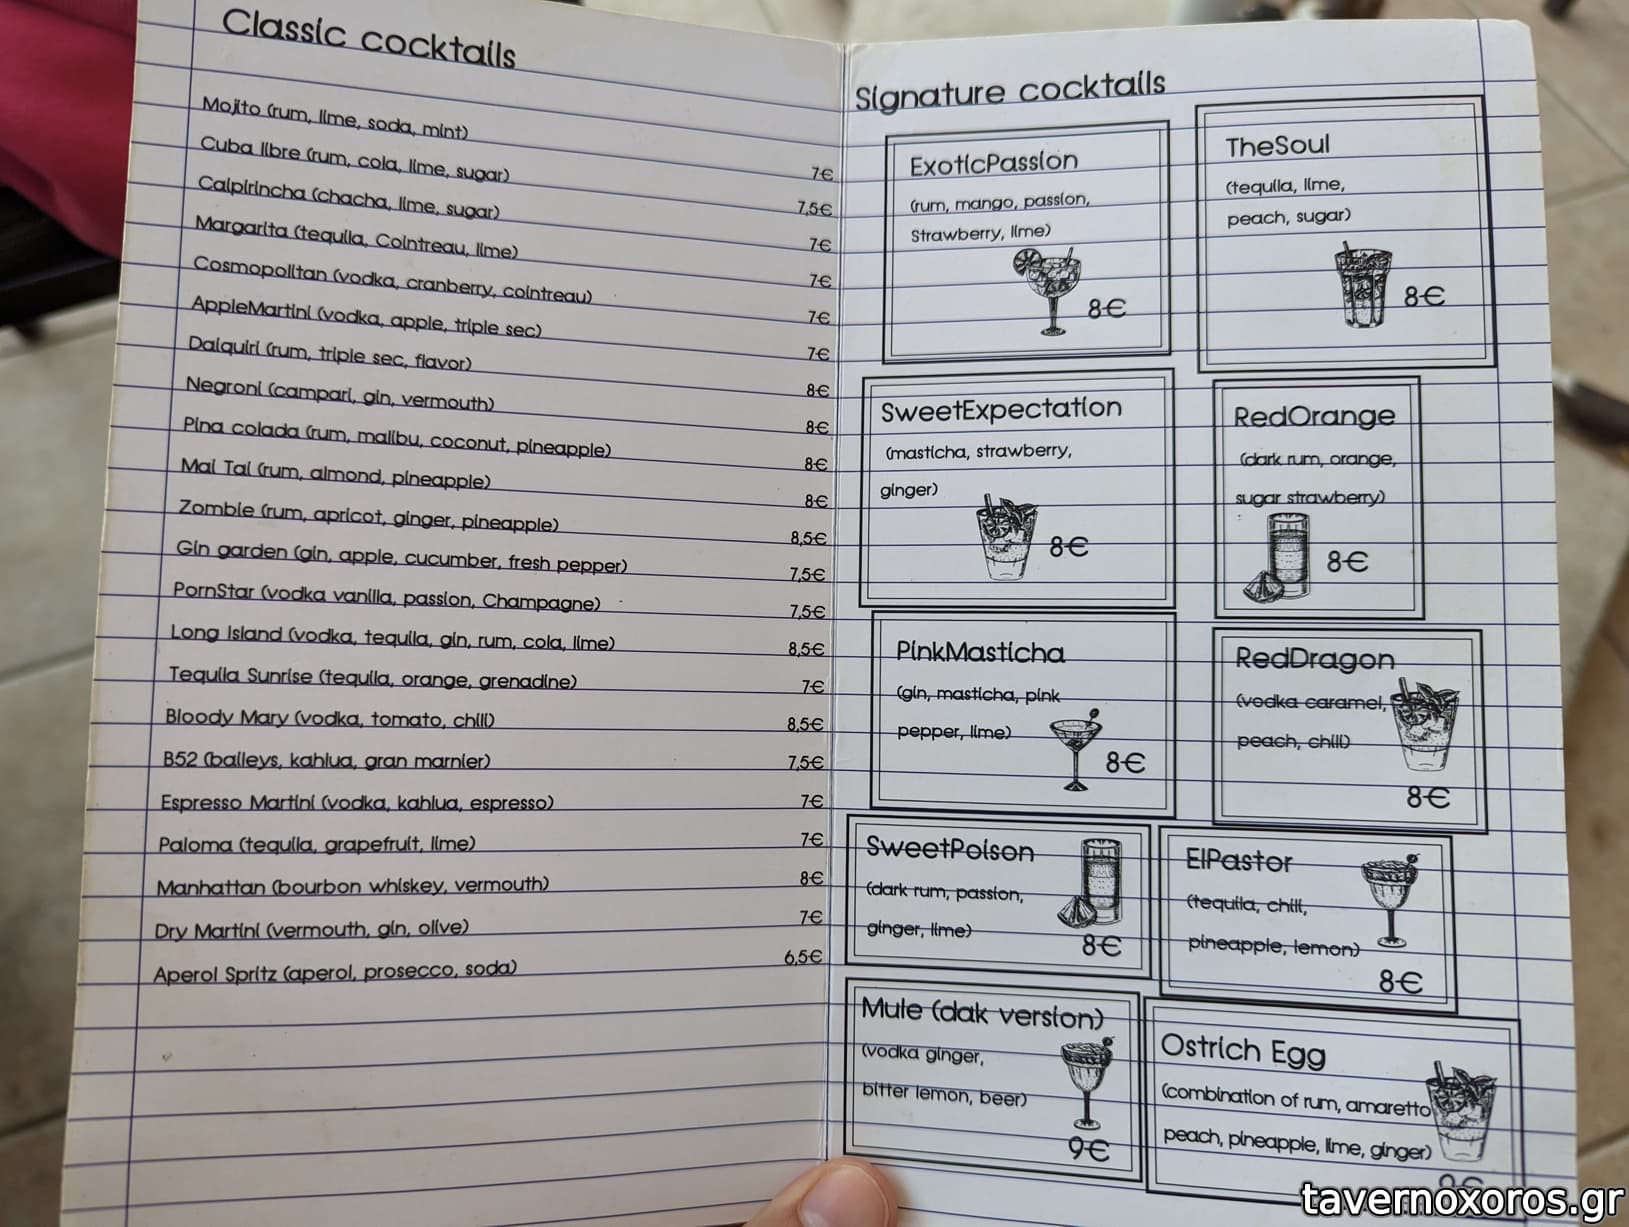 Classic cocktails
Mojito (rum, lime, soda, mint) 7€
Cuba libre (rum, cola, lime, sugar) 7,5€
Caipirincha (chacha, lime, sugar) 7€
Margarita (tequila, Cointreau, lime) 7€
Cosmopolitan (vodka, cranberry, cointreau) 7€
AppleMartini (vodka, apple, triple sec) 7€
Daiquiri (rum, triple sec, flavor) 8€
Negroni (campari, gin, vermouth) 8€
Pina colada (rum, malibu, coconut, pineapple) 8€
Mai Tai (rum, almond, pineapple) 8€
Zombie (rum, apricot, ginger, pineapple) 8,5€
Gin garden (gin, apple, cucumber, fresh pepper) 7,5€
PornStar (vodka vanilla, passion, Champagne) 7,5€
Long island (vodka, tequila, gin, rum, cola, lime) 8,5€
Tequila Sunrise (tequila, orange, grenadine) 7€
Bloody Mary (vodka, tomato, chili) 8,5€
B52 (baileys, kahlua, gran marnier) 7,5€
Espresso Martini (vodka, kahlua, espresso) 7€
Paloma (tequila, grapefruit, lime) 7€
Manhattan (bourbon whiskey, vermouth) 8€
Dry Martini (vermouth, gin, olive) 7€
Aperol Spritz (aperol, prosecco, soda) 6,5€
Signature cocktails
ExoticPassion
(rum, mango, passion,
Strawberry, lime)
8€
TheSoul
(tequila, lime,
peach, sugar)
8€
SweetExpectation
(masticha, strawberry,
ginger)
8€
RedOrange
(dark rum, orange,
sugar strawberry)
8€
PinkMasticha
(gin, masticha, pink
pepper, lime)
8€
RedDragon
(vodka caramel,
peach, chili)
8€
SweetPoison
(dark rum, passion,
ginger, lime)
8€
ElPastor
(tequila, chili,
pineapple, lemon)
8€
Mule (dak version)
(vodka ginger,
bitter lemon, beer)
9€
Ostrich Egg
(combination of rum, amaretto
peach, pineapple, lime, ginger)
tavernoxoros.gr